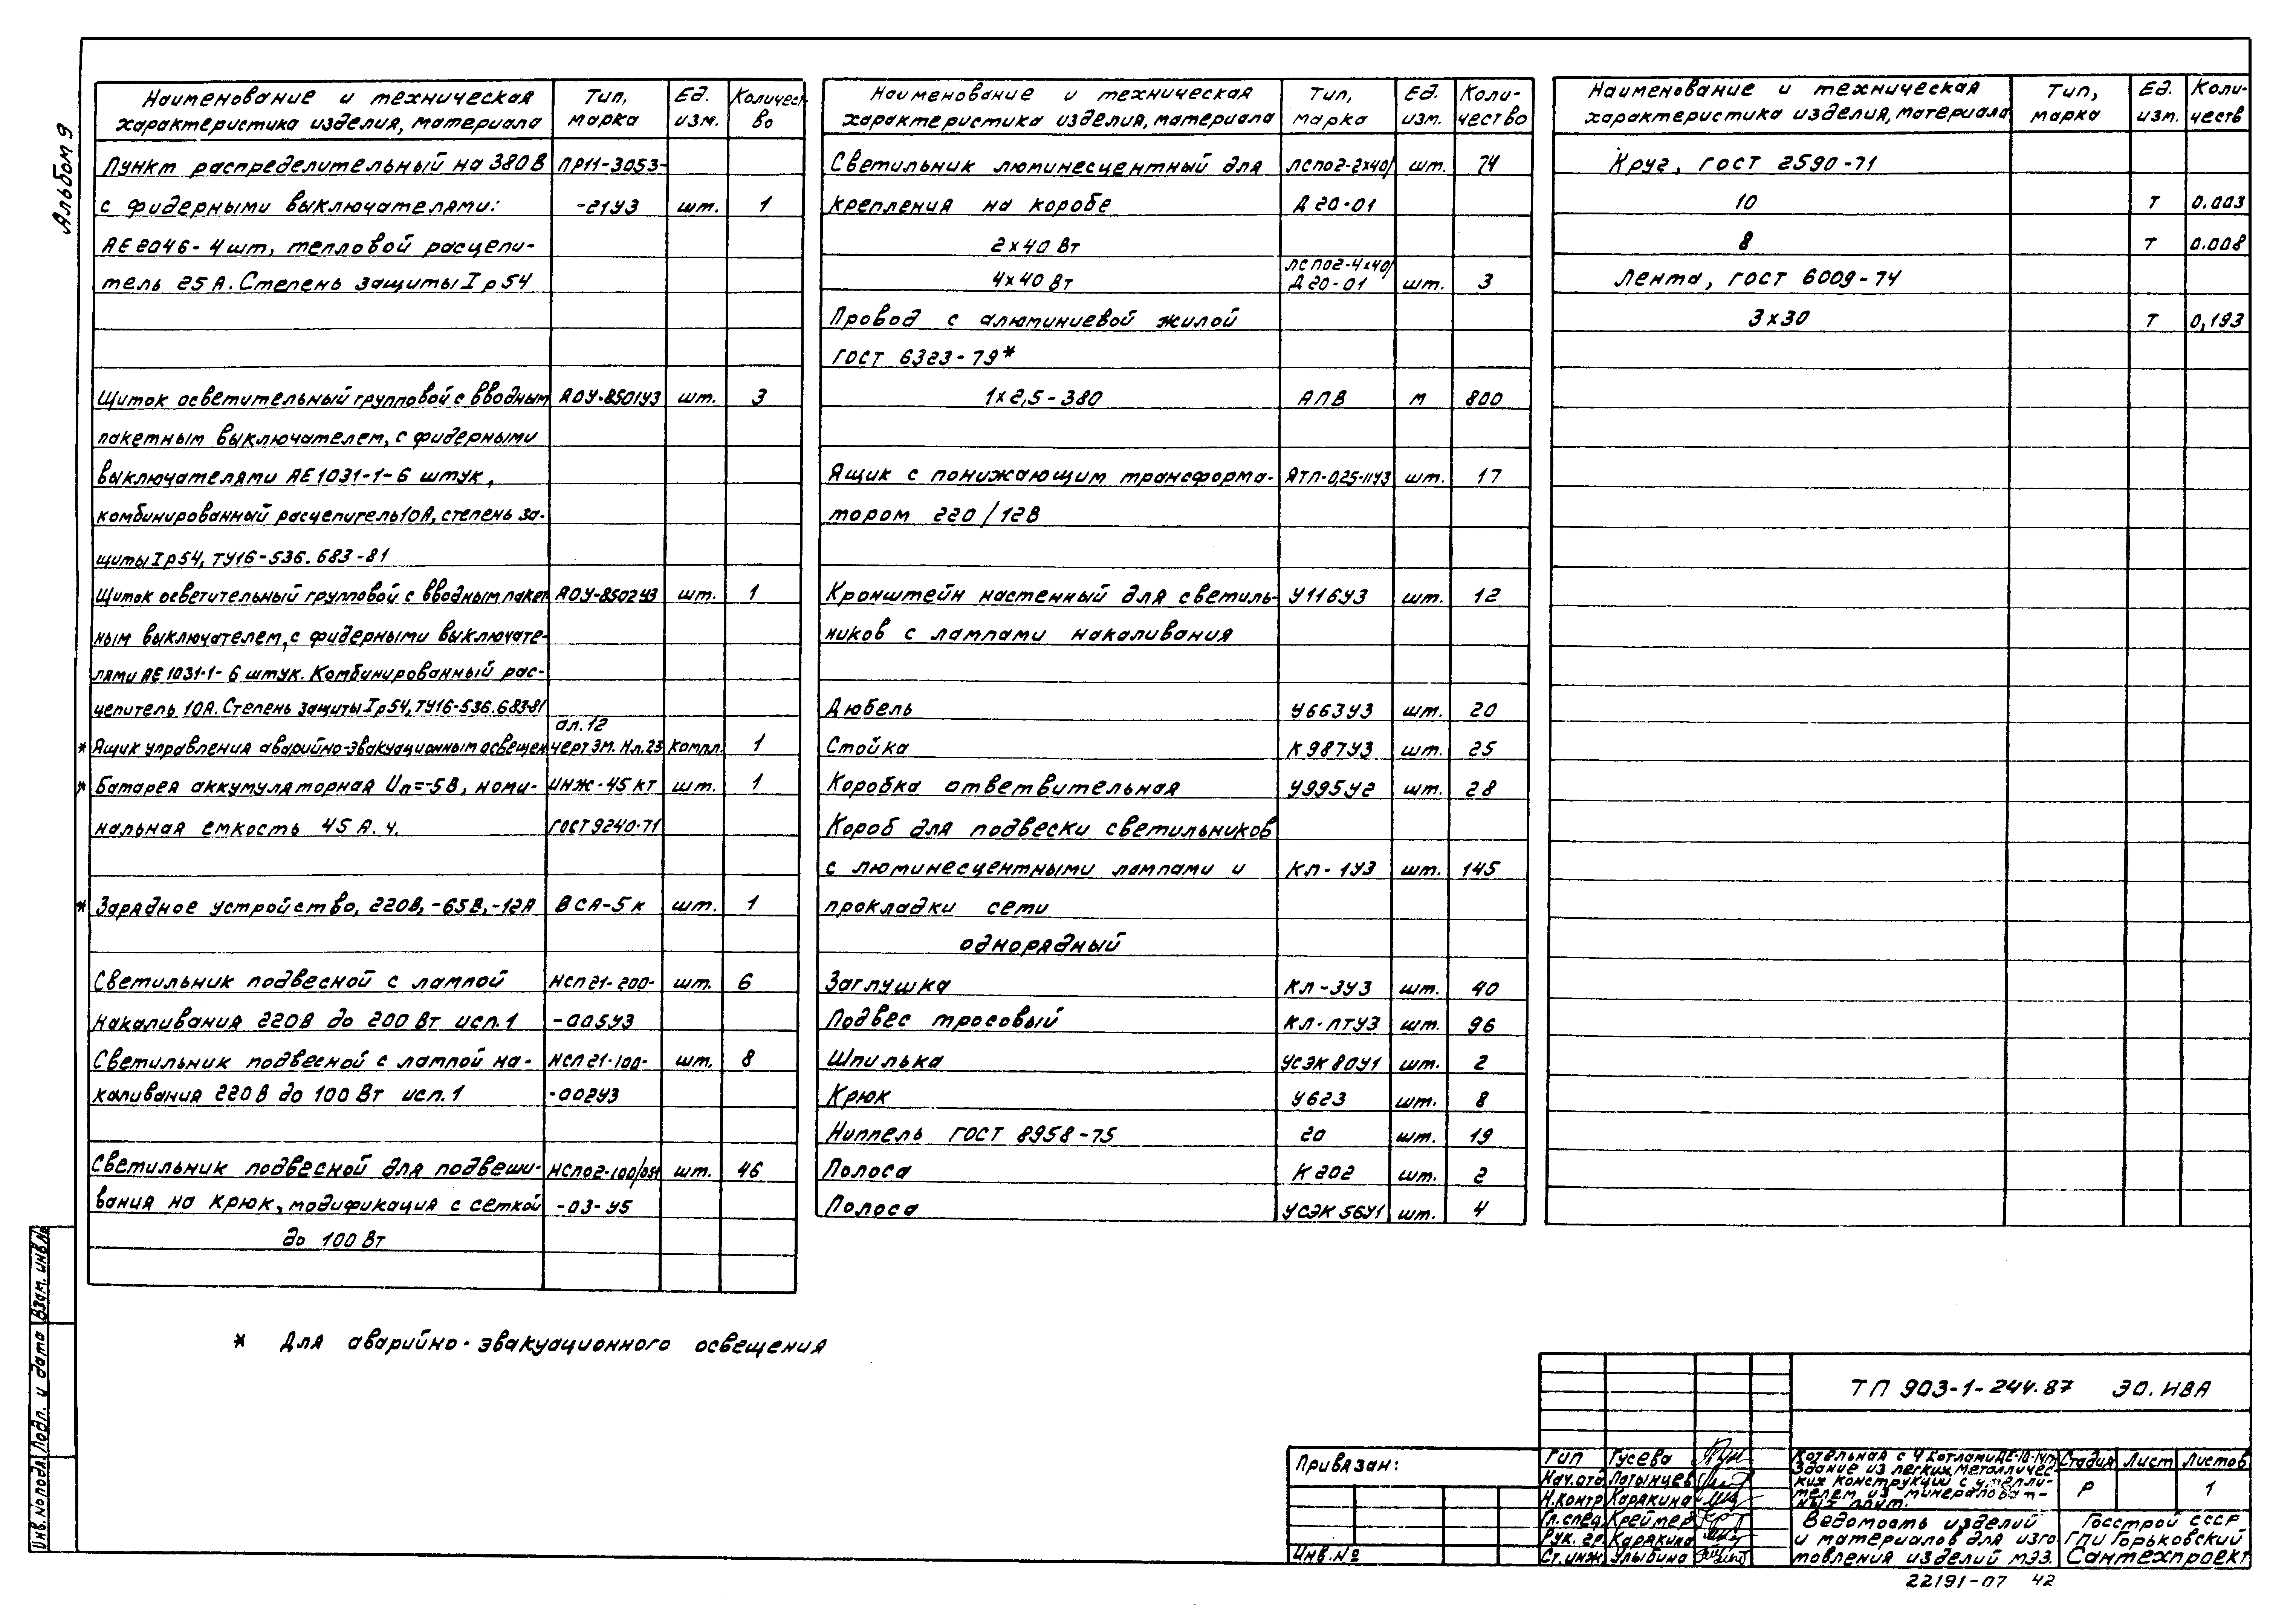 Альбом 9
Наименование и техническая характеристика изделия, материала | Тип, марка | Ед. изм. | Количест во
Пункт распределительный на 380В | ПР11-3053-
с фидерными выключателями: | -21У3 | шт. | 1
АЕ2046-4шт, тепловой расцепи-
тель 25А. Степень защиты Iр54
Щиток осветительный групповой с вводным | ЯОУ-8501У3 | шт. | 3
пакетным выключателем, с фидерными
выключателями АЕ1031-1-6 штук,
комбинированный расцепитель 10А, степень за-
щиты Iр54, ТУ16-536.683-81
Щиток осветительный групповой с вводным пакет | ЯОУ-8502У3 | шт. | 1
ным выключателем, с фидерными выключате-
лями АЕ1031-1-6 штук. Комбинированный рас-
цепитель 10А. Степень защиты Iр54, ТУ16-536.683-81
ал.12
* Ящик управления аварийно-эвакуационным освещен | черт ЭМ. Нл.23 | компл. | 1
* Батарея аккумуляторная Uп=-5В, номи- | ИНЖ-45 кт | шт. | 1
нальная емкость 45 А.ч. | ГОСТ 9240-71
* Зарядное устройство, 220В, -65В, -12А | ВСА-5к | шт. | 1
Светильник подвесной с лампой | НСП21-200- | шт. | 6
накаливания 220В до 200Вт исп.1 | -005У3
Светильник подвесной с лампой на- | НСП21-100- | шт. | 8
каливания 220В до 100Вт исп.1 | -002У3
Светильник подвесной для подвеши- | НСП02-100/Р51 | шт. | 46
вания на крюк, модификация с сеткой | -03-У5
до 100Вт
* Для аварийно-эвакуационного освещения
Наименование и техническая характеристика изделия, материала | Тип, марка | Ед. изм. | Коли-чество
Светильник люминесцентный для | ЛСП02-2х40/ | шт. | 74
крепления на коробе | Д20-01
2х40 Вт
ЛСП02-4х40/
4х40 Вт | Д20-01 | шт. | 3
Провод с алюминиевой жилой
ГОСТ 6323-79*
1х2,5-380 | АПВ | м | 800
Ящик с понижающим трансформа- | ЯТП-0,25-11У3 | шт. | 17
тором 220/12В
Кронштейн настенный для светиль- | У116У3 | шт. | 12
ников с лампами накаливания
Дюбель | У663У3 | шт. | 20
Стойка | К987У3 | шт. | 25
Коробка ответвительная | У995У2 | шт. | 28
Короб для подвески светильников
с люминесцентными лампами и | КЛ-1У3 | шт. | 145
прокладки сети
однорядный
Заглушка | КЛ-3У3 | шт. | 40
Подвес тросовый | КЛ-ПТУ3 | шт. | 96
Шпилька | УСЭК 80У1 | шт. | 2
Крюк | У623 | шт. | 8
Ниппель ГОСТ 8958-75 | 20 | шт. | 19
Полоса | К202 | шт. | 2
Полоса | УСЭК 56У1 | шт. | 4
Наименование и техническая характеристика изделия, материала | Тип, марка | Ед. изм. | Коли-честв
Круг, ГОСТ 2590-71
10 | Т | 0.003
8 | Т | 0.008
Лента, ГОСТ 6009-74
3х30 | Т | 0,193
ТП 903-1-244.87 ЭО.НВА
Привязан:
Инв.№
ГИП Гусева
Нач.отд Латынцев
Н.контр Карякина
Гл.спец Креймер
Рук. гр. Карякина
Ст.инж Улыбина
Котельная с 4 котлами ДЕ-10-14гм
Здание из легких металличес-
ких конструкций с утепли-
телем из минераловат-
ных плит.
Стадия | Лист | Листов
Р | 1
Ведомость изделий
и материалов для изго
товления изделий МЭЗ.
Госстрой СССР
ГПИ Горьковский
Сантехпроект
22191-07 42
Инв.№ подл.
Подп. и дата
Взам. инв.№